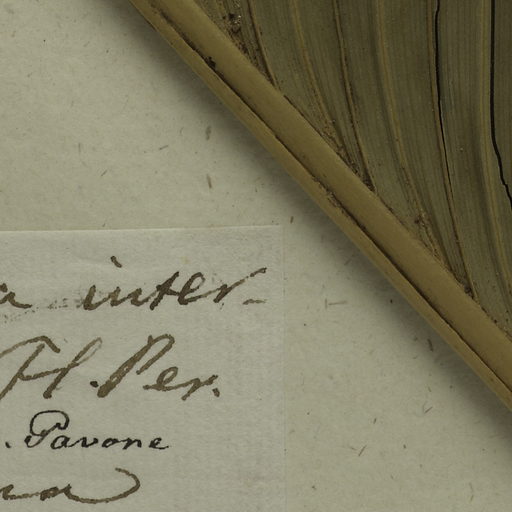 inter-
Fl. Per.
. Pavone